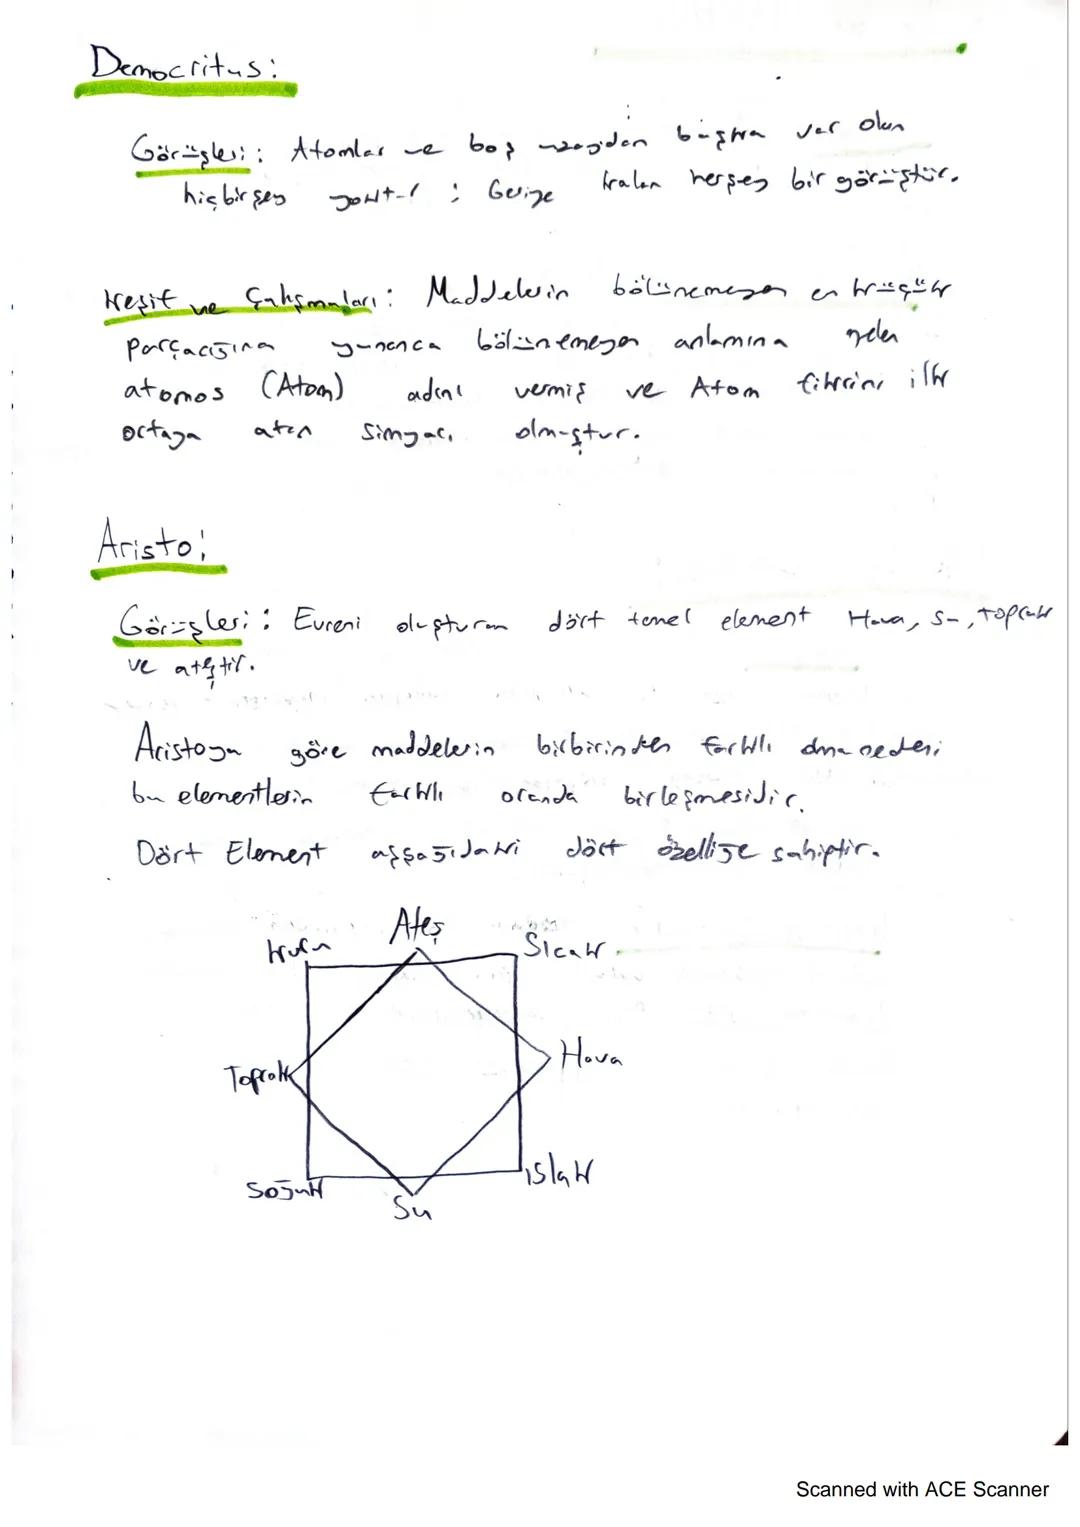 Democritus:
Görüşleri: Atomlar ve boş uzaydan başka var olan
hiçbirşey yoktur ; Geriye kalan herşey bir görüştür.
Keşif ve Çalışmaları: Maddelerin bölünemeyen en küçük
parçacığına yunanca bölünemeyen anlamına gelen
atomos (Atom) adını vermiş ve Atom fikrini ilk
ortaya atan Simyacı olmuştur.
Aristo:
Görüşleri: Evreni oluşturan dört temel element Hava, Su, toprak
ve ateştir.
Aristoya göre maddelerin birbirinden farklı olma nedeni
bu elementlerin farklı oranda birleşmesidir.
Dört Element aşşağıdaki dört özelliğe sahiptir.
Ateş
Kuru Sıcak
Toprak Hava
Soğuk ıslak
Su
Scanned with ACE Scanner